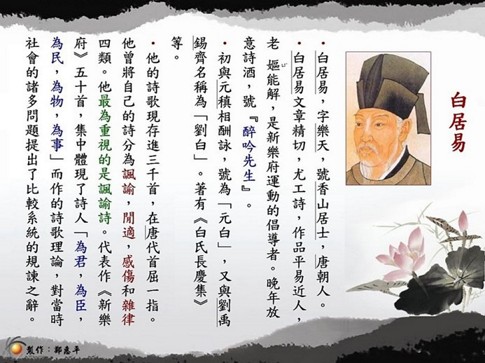 白居易
‧白居易，字樂天，號香山居士，唐朝人。
‧白居易文章精切，尤工詩，作品平易近人，
老 嫗能解，是新樂府運動的倡導者。晚年放
意詩酒，號『醉吟先生』。
‧初與元稹相酬詠，號為「元白」，又與劉禹
錫齊名稱為「劉白」。著有《白氏長慶集》
等。
‧他的詩歌現存進三千首，在唐代首屈一指。
他曾將自己的詩分為諷諭，閒適，感傷和雜律
四類。他最為重視的是諷諭詩。代表作《新樂
府》五十首，集中體現了詩人「為君，為臣，
為民，為物，為事」而作的詩歌理論，對當時
社會的諸多問題提出了比較系統的規諫之辭。
製作：